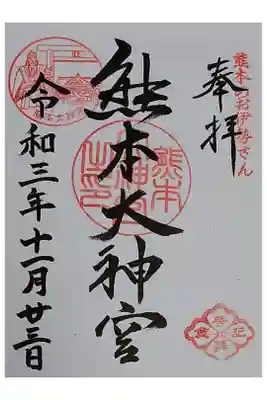 熊本のお伊勢さん
奉拝
熊本大神宮
令和三年十一月廿三日